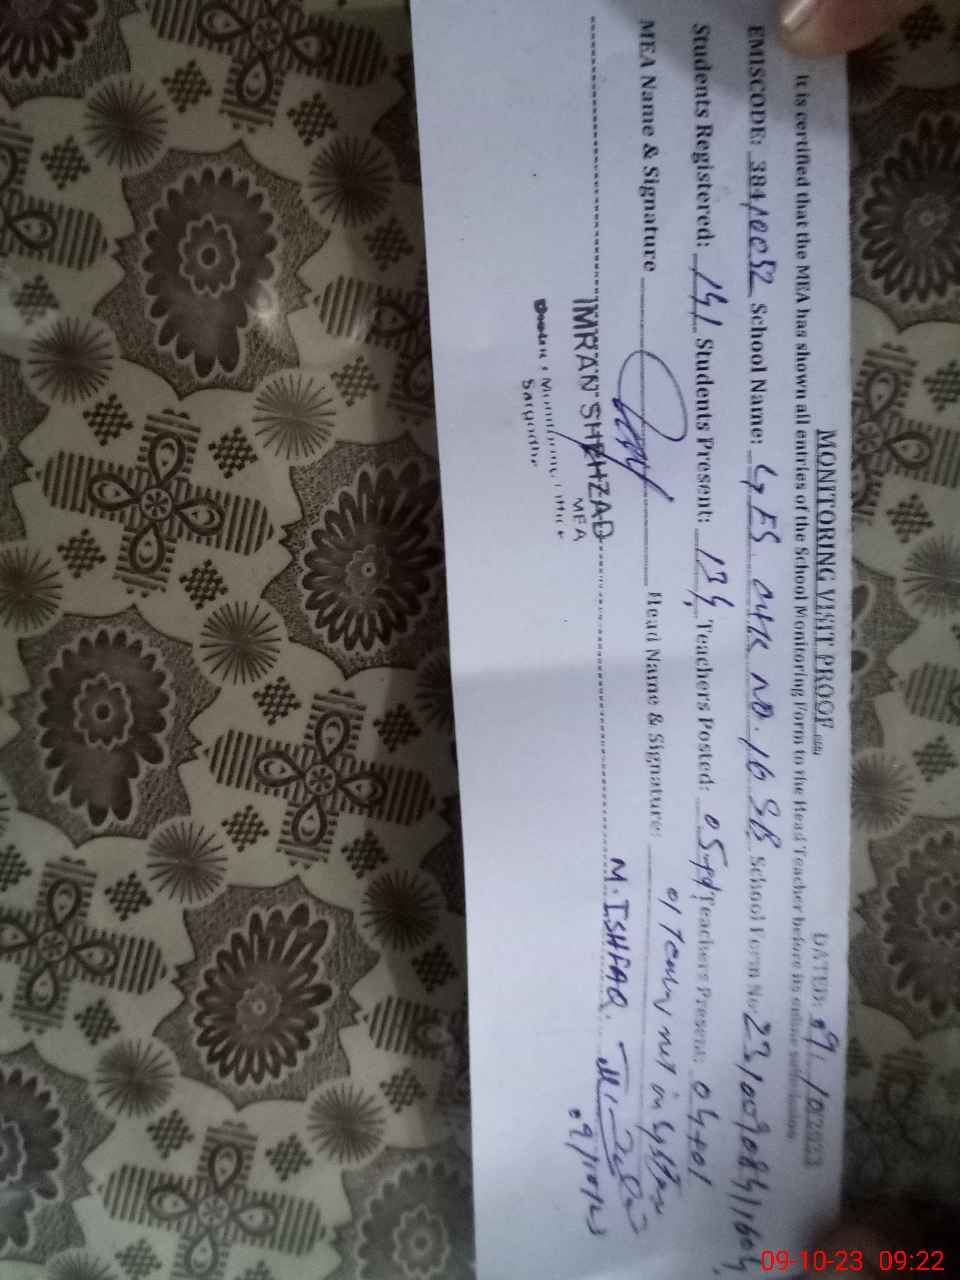 MONITORING VISIT PROOF
DATED: 09/10/2023
It is certified that the MEA has shown all entries of the School Monitoring Form to the Head Teacher before its online submission
EMISCODE: 38410052 School Name: GES CHK NO. 16 SB School Form No:
Students Registered: 141 Students Present: 134 Teachers Posted: 05+01 Teachers Present: 04+01
01 Teacher not in system
MEA Name & Signature Head Name & Signature:
IMRAN SHEHZAD M. ISHFAQ
MEA 09/10/23
Sargodha
09-10-23 09:22